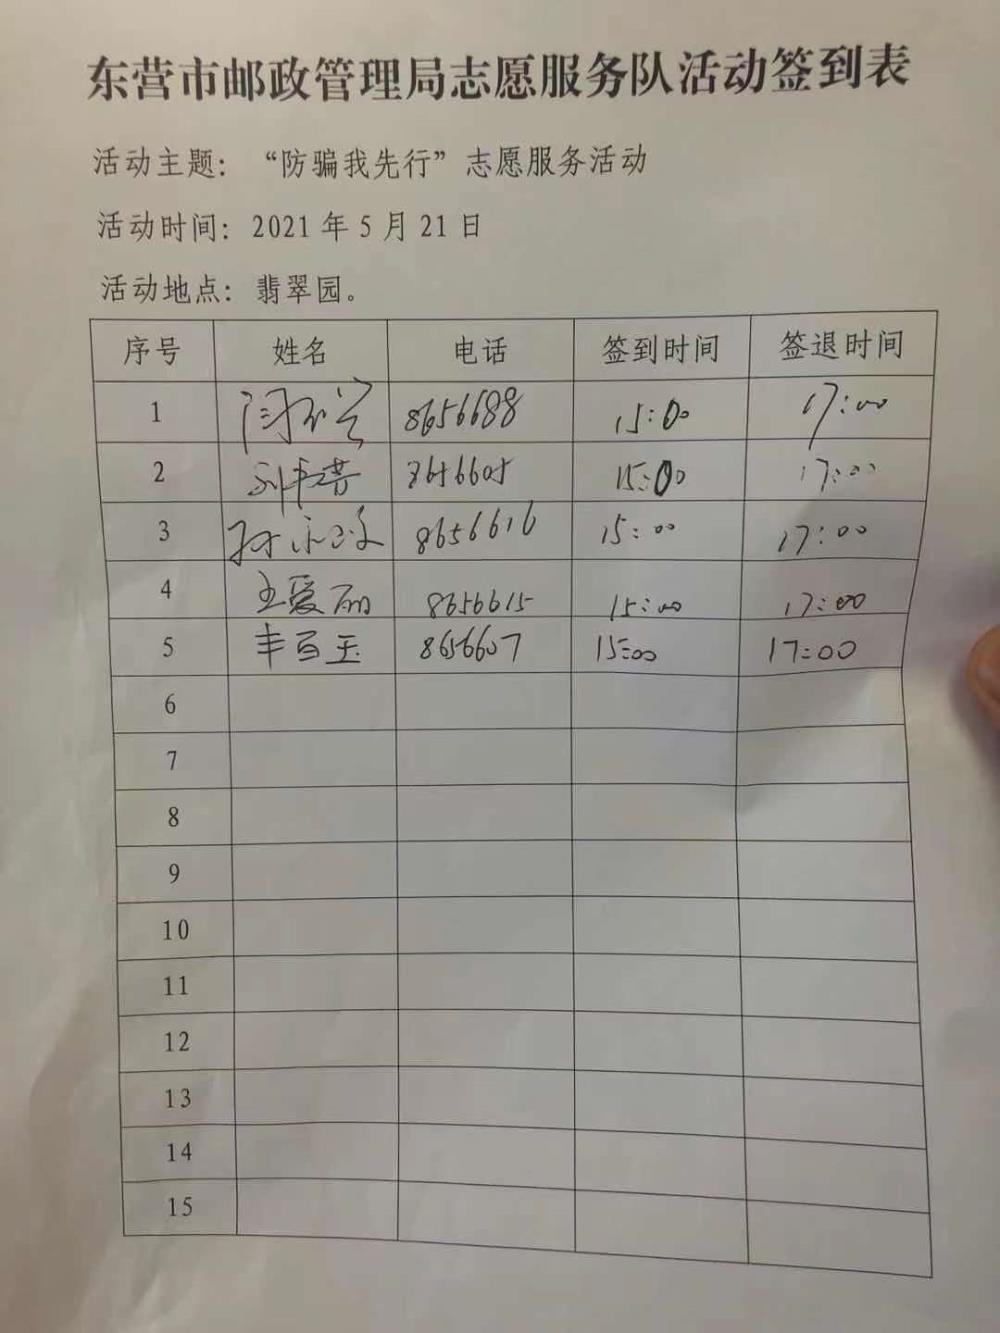 东营市邮政管理局志愿服务队活动签到表
活动主题：“防骗我先行”志愿服务活动
活动时间：2021年5月21日
活动地点：翡翠园。
序号 姓名 电话 签到时间 签退时间
1 8656688 15:00 17:00
2 8656605 15:00 17:00
3 8656616 15:00 17:00
4 王爱丽 8656615 15:00 17:00
5 丰百玉 8656607 15:00 17:00
6
7
8
9
10
11
12
13
14
15